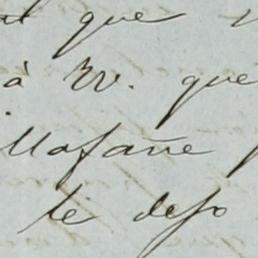 que
à W. que
illafañe
te dejo